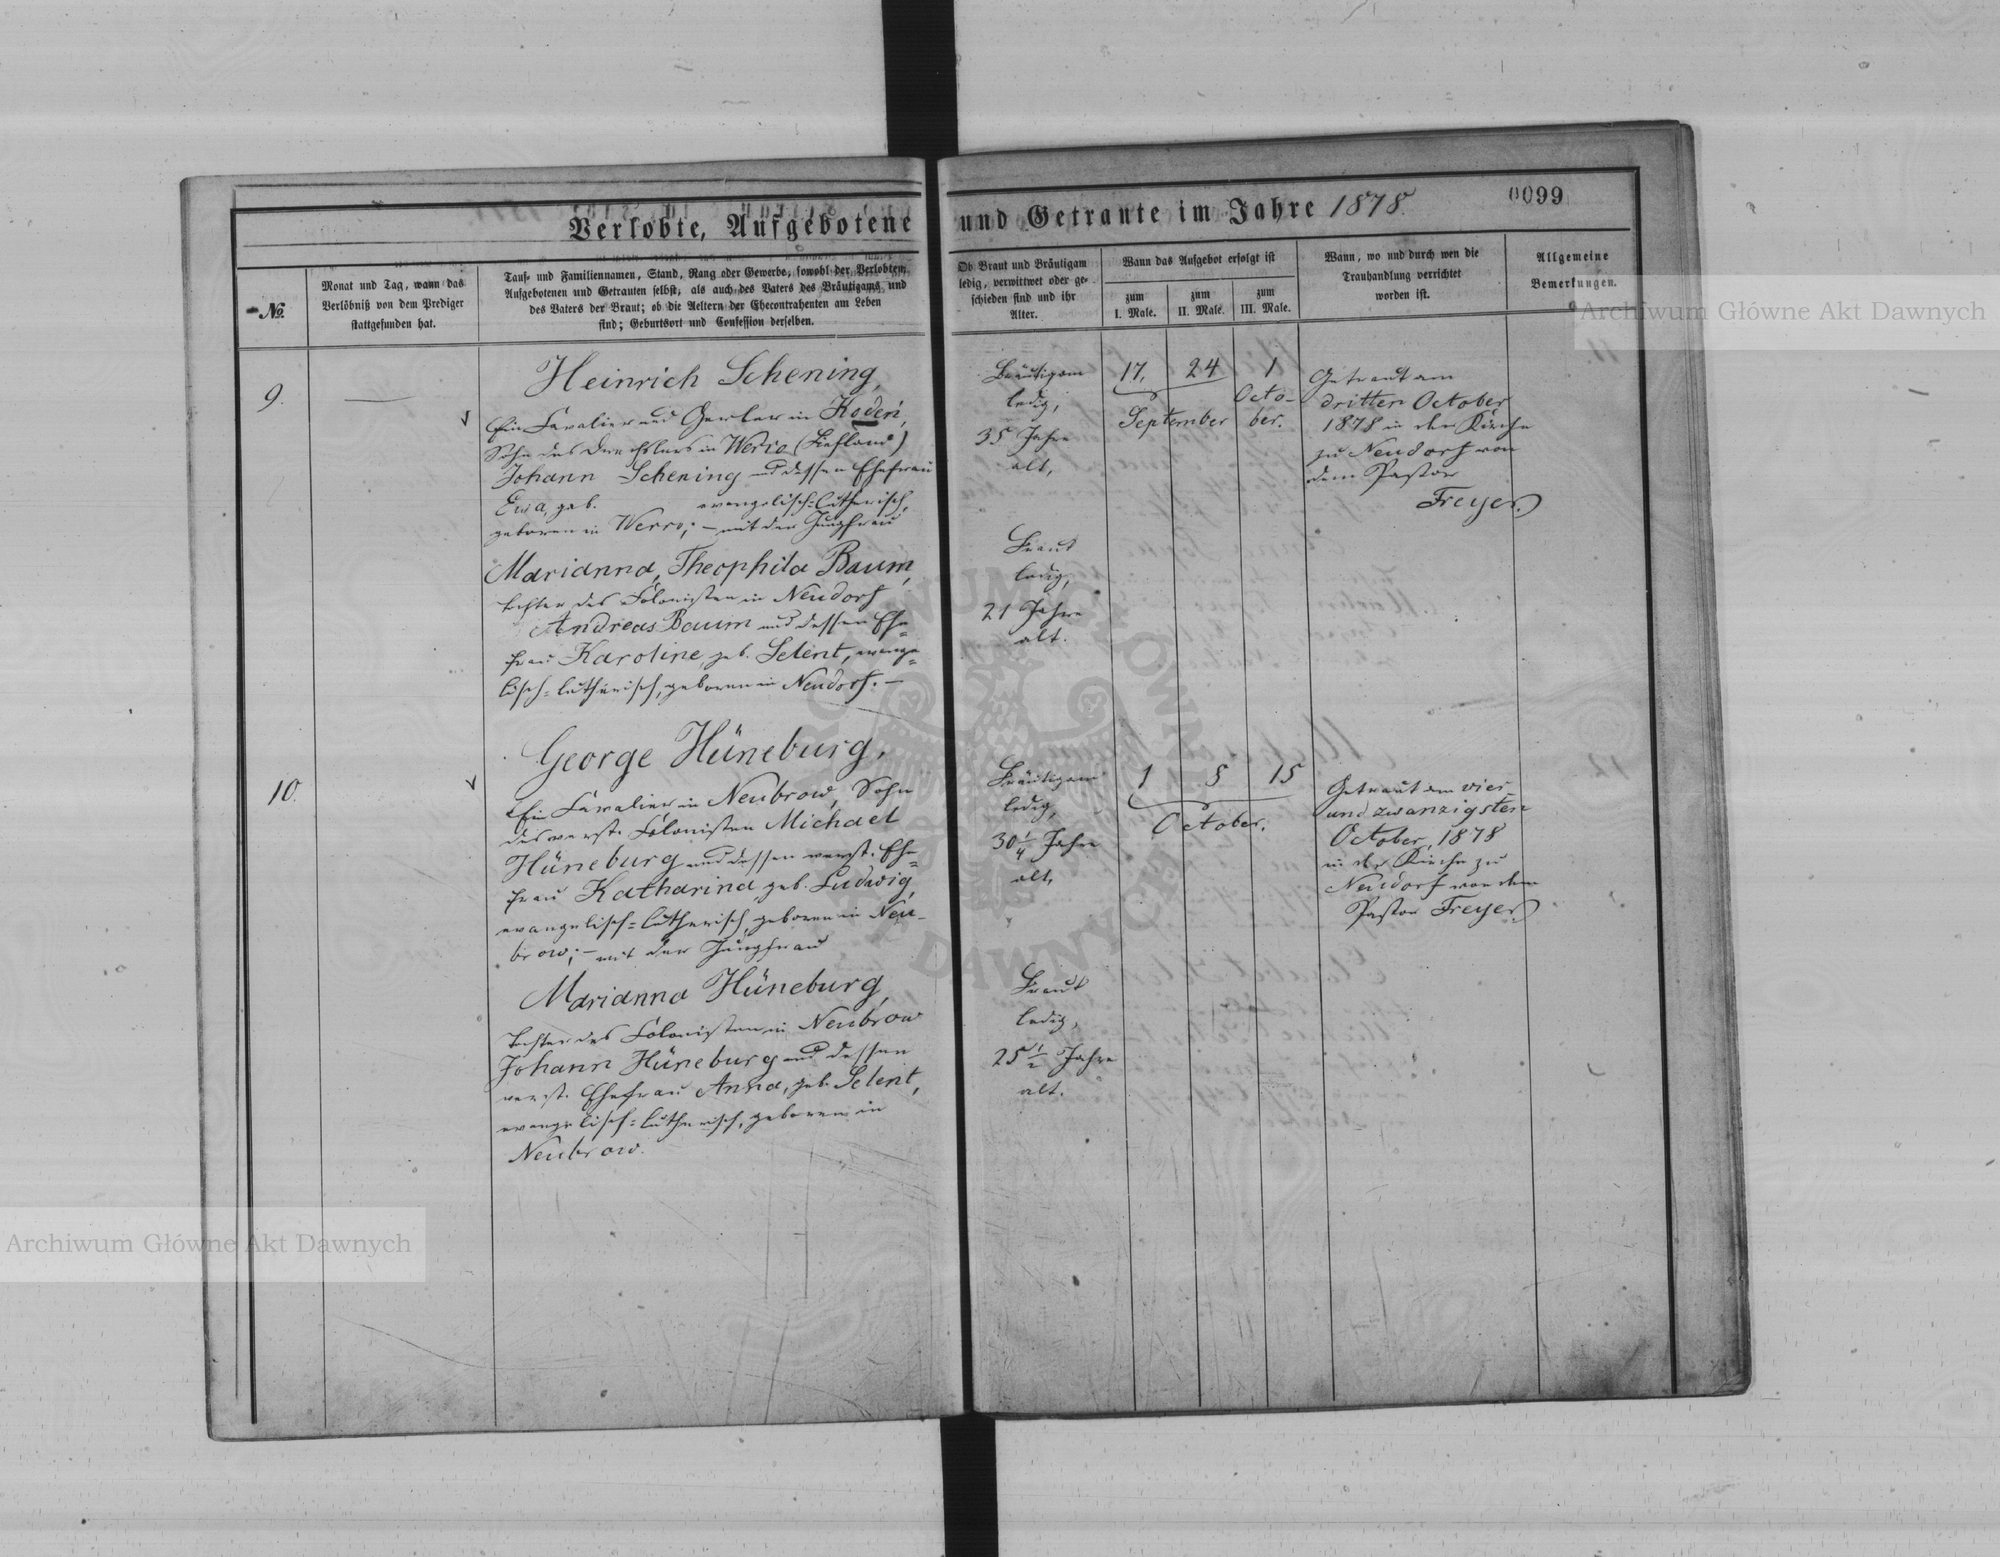 0099
Verlobte, Aufgebotene und Getraute im Jahre 1878.
№
Monat und Tag, wann das
Verlöbniß von dem Prediger
stattgefunden hat.
Tauf- und Familiennamen, Stand, Rang oder Gewerbe, sowohl der Verlobten,
Aufgebotenen und Getrauten selbst, als auch des Vaters des Bräutigams und
des Vaters der Braut; ob die Aeltern der Ehecontrahenten am Leben
sind; Geburtsort und Confession derselben.
Ob Braut und Bräutigam
ledig, verwittwet oder ge-
schieden sind und ihr
Alter.
Wann das Aufgebot erfolgt ist
zum
I. Male.
zum
II. Male.
zum
III. Male.
Wann, wo und durch wen die
Trauhandlung verrichtet
worden ist.
Allgemeine
Bemerkungen.
9.
Heinrich Schening,
Ein Cavalier und Gerber in Kodeń,
Sohn des Drechslers in Werro (Liefland)
Johann Schening und dessen Ehefrau
Ewa, geb. evangelisch=lutherisch,
geboren in Werro; – mit der Jungfrau
Marianna, Theophila Baum,
Tochter des Colonisten in Neudorf
Andreas Baum und dessen Ehe=
frau Karoline, geb. Selent, evange=
lisch=lutherisch, geboren in Neudorf. –
Bräutigam
ledig,
35 Jahre
alt,
Braut
ledig,
21 Jahre
alt.
17. 24 1
September
Octo-
ber.
Getraut am
dritten October
1878 in der Kirche
zu Neudorf von
dem Pastor
Freyer.
10.
George Hüneburg,
Ein Cavalier in Neubrow, Sohn
des verst. Colonisten Michael
Hüneburg und dessen verst. Ehe=
frau Katharina, geb. Ludwig,
evangelisch=lutherisch, geboren in Neu-
brow; – mit der Jungfrau
Marianna Hüneburg,
Tochter des Colonisten in Neubrow
Johann Hüneburg und dessen
verst. Ehefrau Anna, geb. Selent,
evangelisch=lutherisch, geboren in
Neubrow.
Bräutigam
ledig,
30 1/4 Jahre
alt,
Braut
ledig,
25 1/2 Jahre
alt.
1 8 15
October.
Getraut am vier-
und zwanzigsten
October, 1878
in der Kirche zu
Neudorf von dem
Pastor Freyer.
Archiwum Główne Akt Dawnych
Archiwum Główne Akt Dawnych
ARCHIWUM GŁÓWNE AKT DAWNYCH